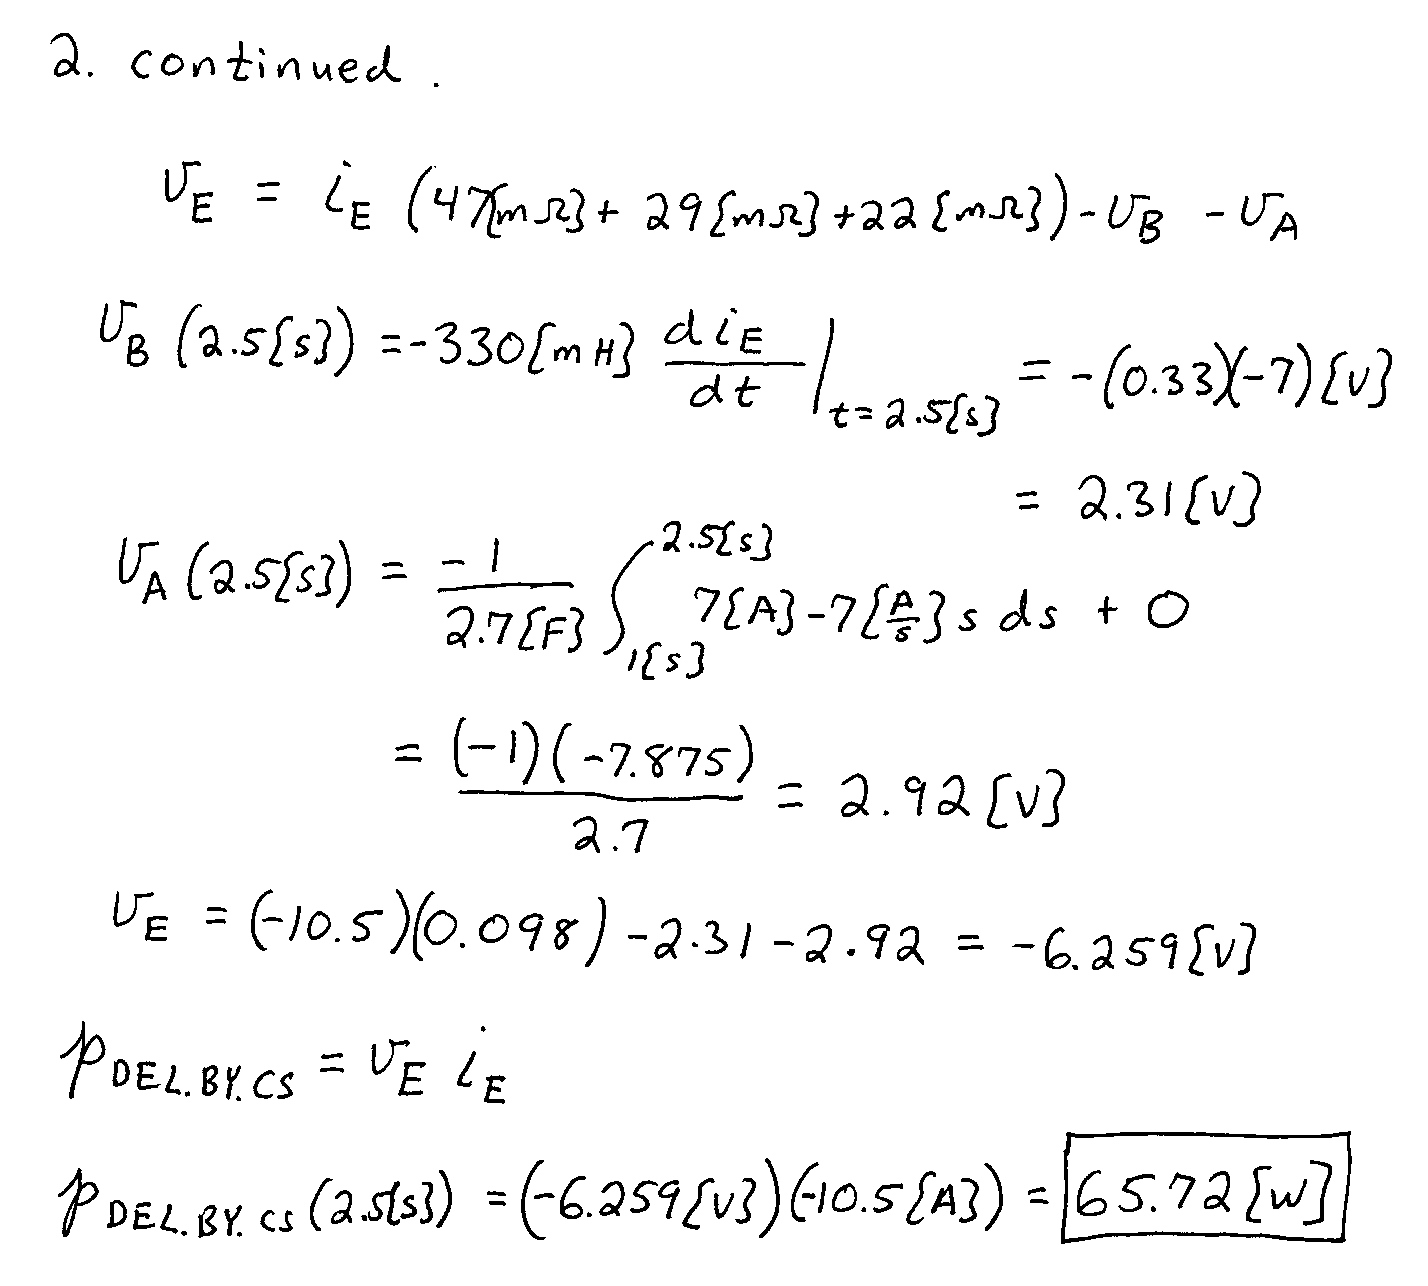 2. continued.
v_E = i_E (47[mΩ] + 29[mΩ] + 22[mΩ]) - v_B - v_A
v_B (2.5[s]) = -330[mH] di_E/dt |_t=2.5[s] = -(0.33)(-7)[V]
= 2.31[V]
v_A (2.5[s]) = -1/2.7[F] ∫_1[s]^2.5[s] 7[A] - 7[A/s] s ds + 0
= (-1)(-7.875)/2.7 = 2.92[V]
v_E = (-10.5)(0.098) - 2.31 - 2.92 = -6.259[V]
p_DEL.BY.CS = v_E i_E
p_DEL.BY.CS (2.5[s]) = (-6.259[V])(-10.5[A]) = 65.72[W]